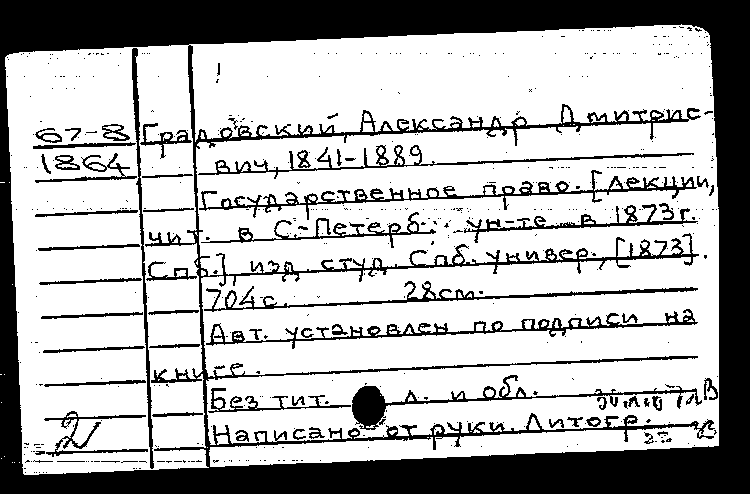 67-8 Градовский, Александр Дмитрие-
1864 вич, 1841-1889.
Государственное право. [Лекции,
чит. в С.-Петерб. ун-те в 1873г.
Спб.], изд. студ. Спб. универ., [1873].
704с. 28см.
Авт. установлен по подписи на
книге.
Без тит. л. и обл.
2 Написано от руки. Литогр.